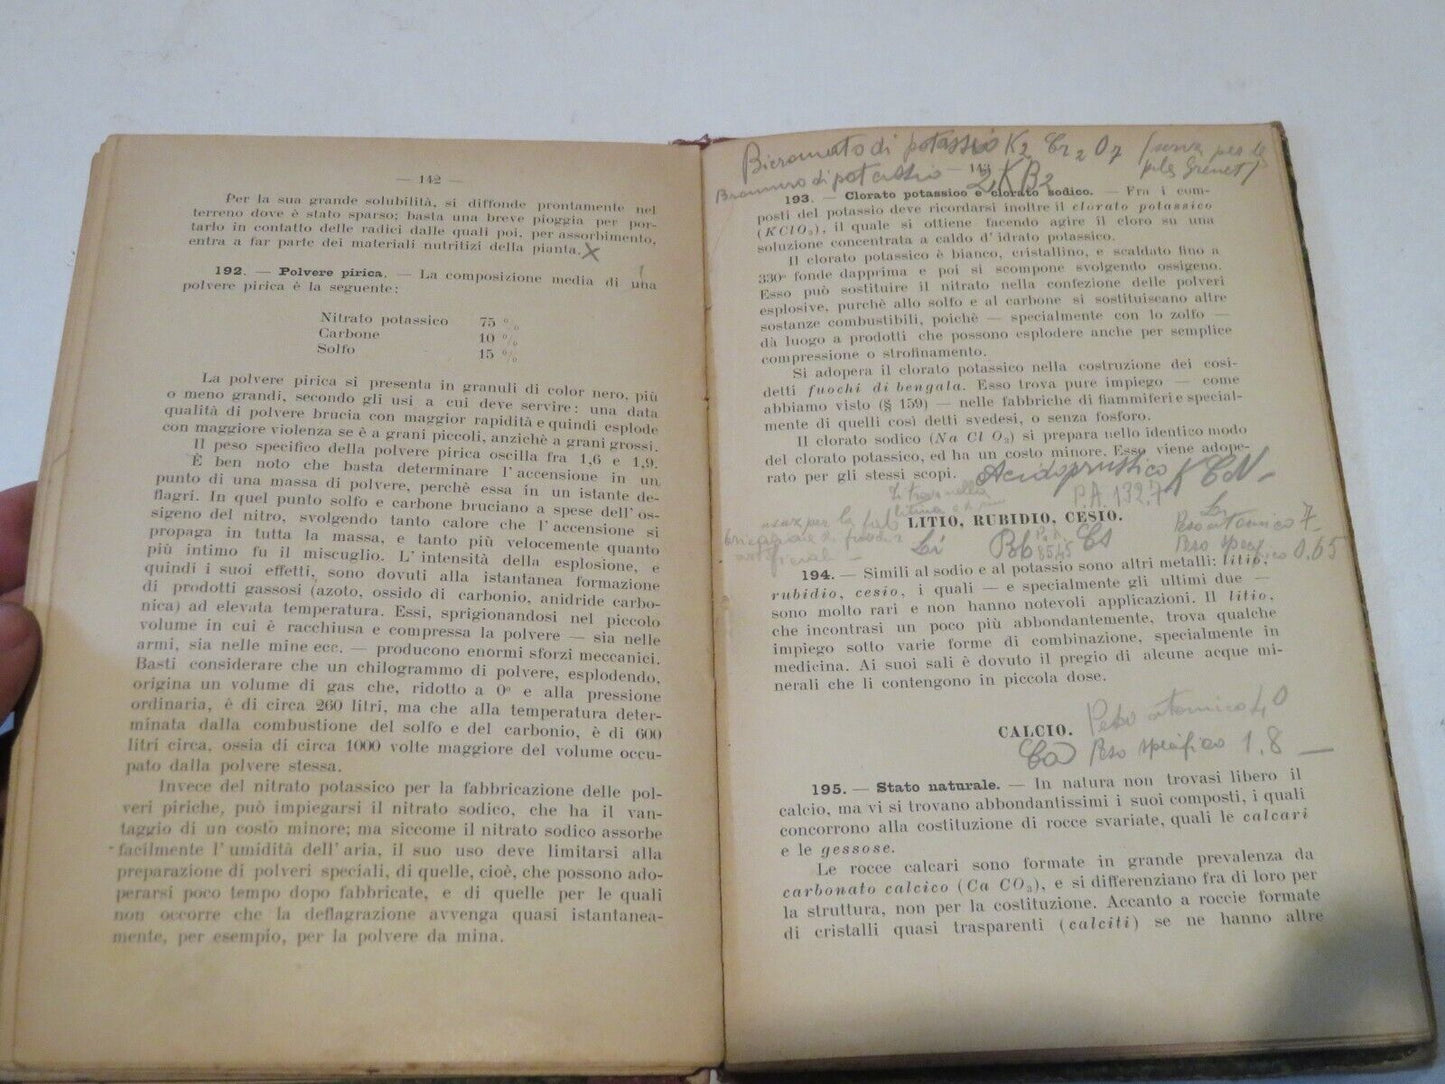 — 142 —
Per la sua grande solubilità, si diffonde prontamente nel
terreno dove è stato sparso; basta una breve pioggia per por-
tarlo in contatto delle radici dalle quali poi, per assorbimento,
entra a far parte dei materiali nutritizi della pianta. X
192. — Polvere pirica. — La composizione media di una
polvere pirica è la seguente:
Nitrato potassico 75 %
Carbone 10 %
Solfo 15 %
La polvere pirica si presenta in granuli di color nero, più
o meno grandi, secondo gli usi a cui deve servire: una data
qualità di polvere brucia con maggior rapidità e quindi esplode
con maggiore violenza se è a grani piccoli, anzichè a grani grossi.
Il peso specifico della polvere pirica oscilla fra 1,6 e 1,9.
È ben noto che basta determinare l'accensione in un
punto di una massa di polvere, perchè essa in un istante de-
flagri. In quel punto solfo e carbone bruciano a spese dell'os-
sigeno del nitro, svolgendo tanto calore che l'accensione si
propaga in tutta la massa, e tanto più velocemente quanto
più intimo fu il miscuglio. L'intensità della esplosione, e
quindi i suoi effetti, sono dovuti alla istantanea formazione
di prodotti gassosi (azoto, ossido di carbonio, anidride carbo-
nica) ad elevata temperatura. Essi, sprigionandosi nel piccolo
volume in cui è racchiusa e compressa la polvere — sia nelle
armi, sia nelle mine ecc. — producono enormi sforzi meccanici.
Basti considerare che un chilogrammo di polvere, esplodendo,
origina un volume di gas che, ridotto a 0° e alla pressione
ordinaria, è di circa 260 litri, ma che alla temperatura deter-
minata dalla combustione del solfo e del carbonio, è di 600
litri circa, ossia di circa 1000 volte maggiore del volume occu-
pato dalla polvere stessa.
Invece del nitrato potassico per la fabbricazione delle pol-
veri piriche, può impiegarsi il nitrato sodico, che ha il van-
taggio di un costo minore; ma siccome il nitrato sodico assorbe
facilmente l'umidità dell'aria, il suo uso deve limitarsi alla
preparazione di polveri speciali, di quelle, cioè, che possono ado-
perarsi poco tempo dopo fabbricate, e di quelle per le quali
non occorre che la deflagrazione avvenga quasi istantanea-
mente, per esempio, per la polvere da mina.
Bicromato di potassio K2 Cr2 O7 (serve per le
pile Grenet)
Bromuro di potassio 2KB2
— 143
193. — Clorato potassico e clorato sodico. — Fra i com-
posti del potassio deve ricordarsi inoltre il clorato potassico
(KClO3), il quale si ottiene facendo agire il cloro su una
soluzione concentrata a caldo d'idrato potassico.
Il clorato potassico è bianco, cristallino, e scaldato fino a
330° fonde dapprima e poi si scompone svolgendo ossigeno.
Esso può sostituire il nitrato nella confezione delle polveri
esplosive, purchè allo solfo e al carbone si sostituiscano altre
sostanze combustibili, poichè — specialmente con lo zolfo —
dà luogo a prodotti che possono esplodere anche per semplice
compressione o strofinamento.
Si adopera il clorato potassico nella costruzione dei cosi-
detti fuochi di bengala. Esso trova pure impiego — come
abbiamo visto (§ 159) — nelle fabbriche di fiammiferi e special-
mente di quelli così detti svedesi, o senza fosforo.
Il clorato sodico (Na Cl O3) si prepara nello identico modo
del clorato potassico, ed ha un costo minore. Esso viene adope-
rato per gli stessi scopi. Acido prussico K CN
P.A. 132.7
LITIO, RUBIDIO, CESIO.
Li Rb 85.45 Cs
Peso atomico 7
Peso specifico 0,65
194. — Simili al sodio e al potassio sono altri metalli: litio,
rubidio, cesio, i quali — e specialmente gli ultimi due —
sono molto rari e non hanno notevoli applicazioni. Il litio,
che incontrasi un poco più abbondantemente, trova qualche
impiego sotto varie forme di combinazione, specialmente in
medicina. Ai suoi sali è dovuto il pregio di alcune acque mi-
nerali che li contengono in piccola dose.
CALCIO. Peso atomico 40
Ca Peso specifico 1.8 —
195. — Stato naturale. — In natura non trovasi libero il
calcio, ma vi si trovano abbondantissimi i suoi composti, i quali
concorrono alla costituzione di rocce svariate, quali le calcari
e le gessose.
Le rocce calcari sono formate in grande prevalenza da
carbonato calcico (Ca CO3), e si differenziano fra di loro per
la struttura, non per la costituzione. Accanto a roccie formate
di cristalli quasi trasparenti (calciti) se ne hanno altre